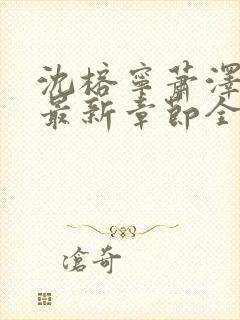 沈榕寧蕭澤
最新章節全
滄奇